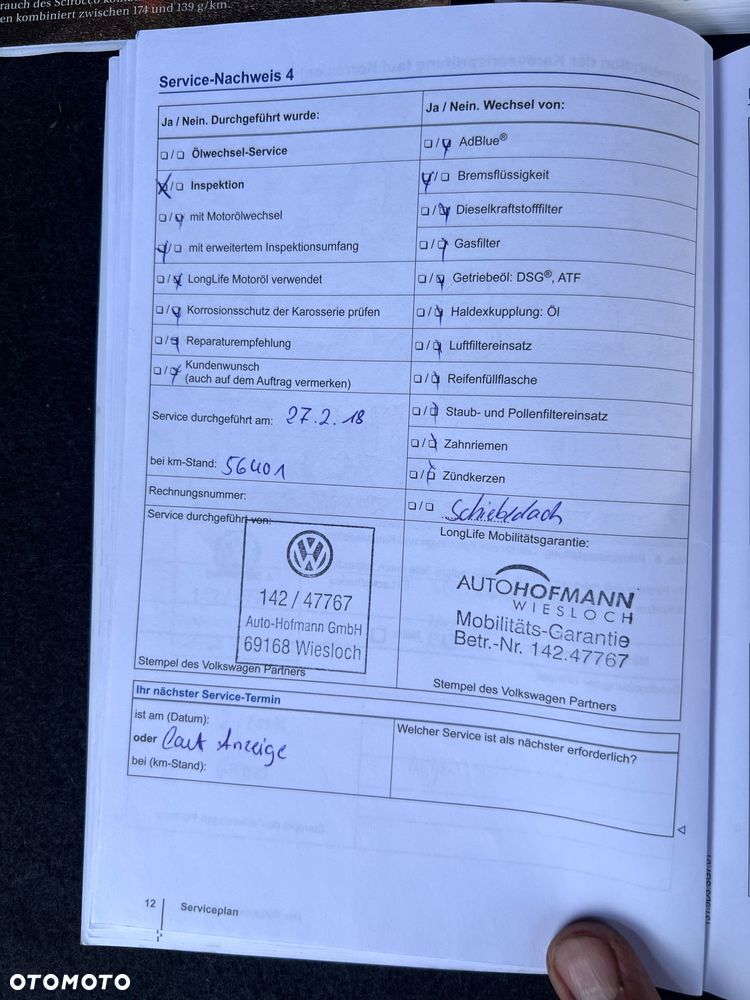 rauch des Scirocco kom
en kombiniert zwischen 174 und 139 g/km.
Service-Nachweis 4
Ja / Nein. Durchgeführt wurde:
Ölwechsel-Service
Inspektion
mit Motorölwechsel
mit erweitertem Inspektionsumfang
LongLife Motoröl verwendet
Korrosionsschutz der Karosserie prüfen
Reparaturempfehlung
Kundenwunsch
(auch auf dem Auftrag vermerken)
Service durchgeführt am: 27.2.18
bei km-Stand: 56401
Rechnungsnummer:
Service durchgeführt von:
142 / 47767
Auto-Hofmann GmbH
69168 Wiesloch
Stempel des Volkswagen Partners
Ja / Nein. Wechsel von:
AdBlue®
Bremsflüssigkeit
Dieselkraftstofffilter
Gasfilter
Getriebeöl: DSG®, ATF
Haldexkupplung: Öl
Luftfiltereinsatz
Reifenfüllflasche
Staub- und Pollenfiltereinsatz
Zahnriemen
Zündkerzen
Schiebedach
LongLife Mobilitätsgarantie:
AUTOHOFMANN
WIESLOCH
Mobilitäts-Garantie
Betr.-Nr. 142.47767
Stempel des Volkswagen Partners
Ihr nächster Service-Termin
ist am (Datum):
oder Laut Anzeige
bei (km-Stand):
Welcher Service ist als nächster erforderlich?
12 Serviceplan
OTOMOTO